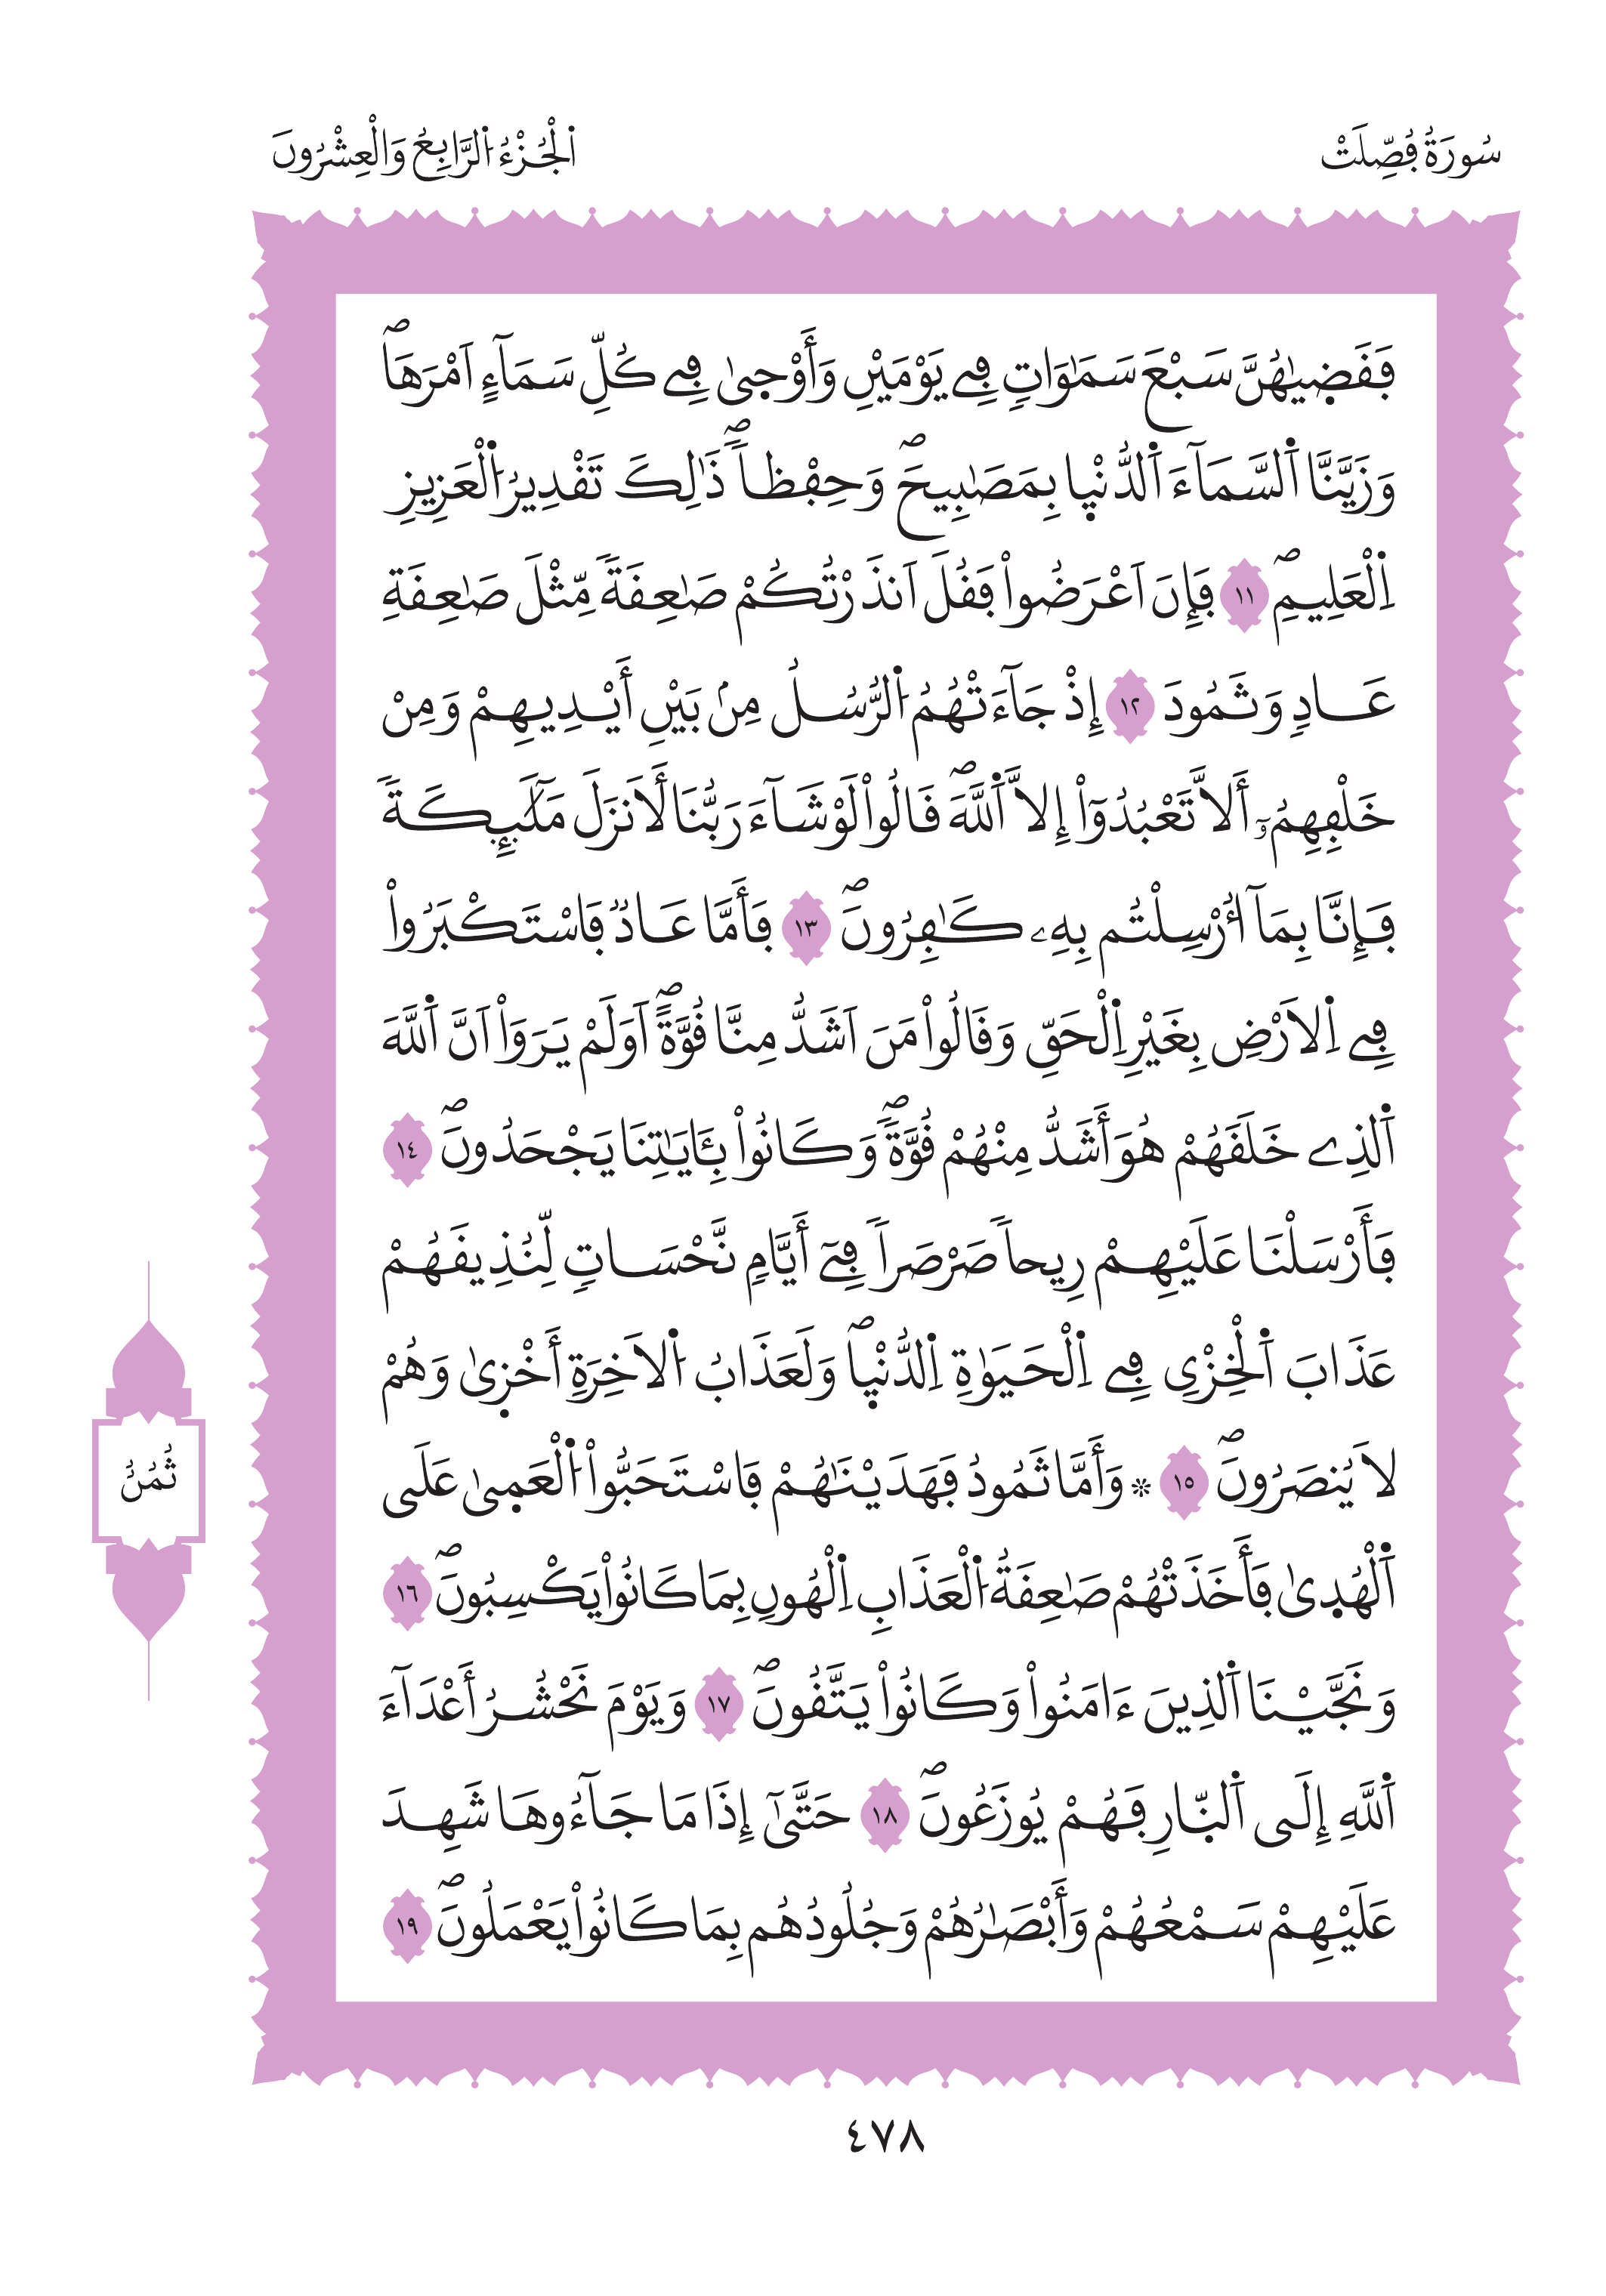 سُورَةُ فُصِّلَتْ
اَ۬لْجُزْءُ اُ۬لرَّابِعُ وَالْعِشْرُونَ
فَقَض۪يٰهُنَّ سَبْعَ سَمَٰوَاتٍ فِے يَوْمَيْنِ وَأَوْح۪يٰ فِے كُلِّ سَمَآءٍ اَمْرَهَاۖ
وَزَيَّنَّا اَ۬لسَّمَآءَ اَ۬لدُّنْي۪ا بِمَصَٰبِيحَۖ وَحِفْظاٗۖ ذَٰلِكَ تَقْدِيرُ اُ۬لْعَزِيزِ
اِ۬لْعَلِيمِۖ ١١ فَإِنَ اَعْرَضُواْ فَقُلَ اَنذَرْتُكُمْ صَٰعِقَةٗ مِّثْلَ صَٰعِقَةِ
عَادٖ وَثَمُودَ ١٢ إِذْ جَآءَتْهُمُ اُ۬لرُّسُلُ مِنۢ بَيْنِ أَيْدِيهِمْ وَمِنْ
خَلْفِهِمُۥٓ أَلَّا تَعْبُدُوٓاْ إِلَّا اَ۬للَّهَۖ قَالُواْ لَوْ شَآءَ رَبُّنَا لَأَنزَلَ مَلَٰٓئِكَةٗ
فَإِنَّا بِمَآ أُرْسِلْتُم بِهِۦ كَٰفِرُونَۖ ١٣ فَأَمَّا عَادٞ فَاسْتَكْبَرُواْ
فِے اِ۬لَارْضِ بِغَيْرِ اِ۬لْحَقِّ وَقَالُواْ مَنَ اَشَدُّ مِنَّا قُوَّةًۖ اَوَلَمْ يَرَوَاْ اَنَّ اَ۬للَّهَ
اَ۬لذِے خَلَقَهُمْ هُوَ أَشَدُّ مِنْهُمْ قُوَّةٗۖ وَكَانُواْ بِـَٔايَٰتِنَا يَجْحَدُونَۖ ١٤
فَأَرْسَلْنَا عَلَيْهِمْ رِيحاٗ صَرْصَراٗ فِےٓ أَيَّامٖ نَّحْسَاتٖ لِّنُذِيقَهُمْ
عَذَابَ اَ۬لْخِزْيِ فِے اِ۬لْحَيَوٰةِ اِ۬لدُّنْي۪اۖ وَلَعَذَابُ اُ۬لَاخِرَةِ أَخْز۪يٰ وَهُمْ
لَا يُنصَرُونَۖ ١٥ * وَأَمَّا ثَمُودُ فَهَدَيْنَٰهُمْ فَاسْتَحَبُّواْ اُ۬لْعَم۪يٰ عَلَى
اَ۬لْهُد۪يٰ فَأَخَذَتْهُمْ صَٰعِقَةُ اُ۬لْعَذَابِ اِ۬لْهُونِ بِمَا كَانُواْ يَكْسِبُونَۖ ١٦
وَنَجَّيْنَا اَ۬لذِينَ ءَامَنُواْ وَكَانُواْ يَتَّقُونَۖ ١٧ وَيَوْمَ نَحْشُرُ أَعْدَآءَ
اَ۬للَّهِ إِلَى اَ۬لنّ۪ارِ فَهُمْ يُوزَعُونَۖ ١٨ حَتَّيٰٓ إِذَا مَا جَآءُوهَا شَهِدَ
عَلَيْهِمْ سَمْعُهُمْ وَأَبْصَٰرُهُمْ وَجُلُودُهُم بِمَا كَانُواْ يَعْمَلُونَۖ ١٩
ثُمُنُ
٤٧٨